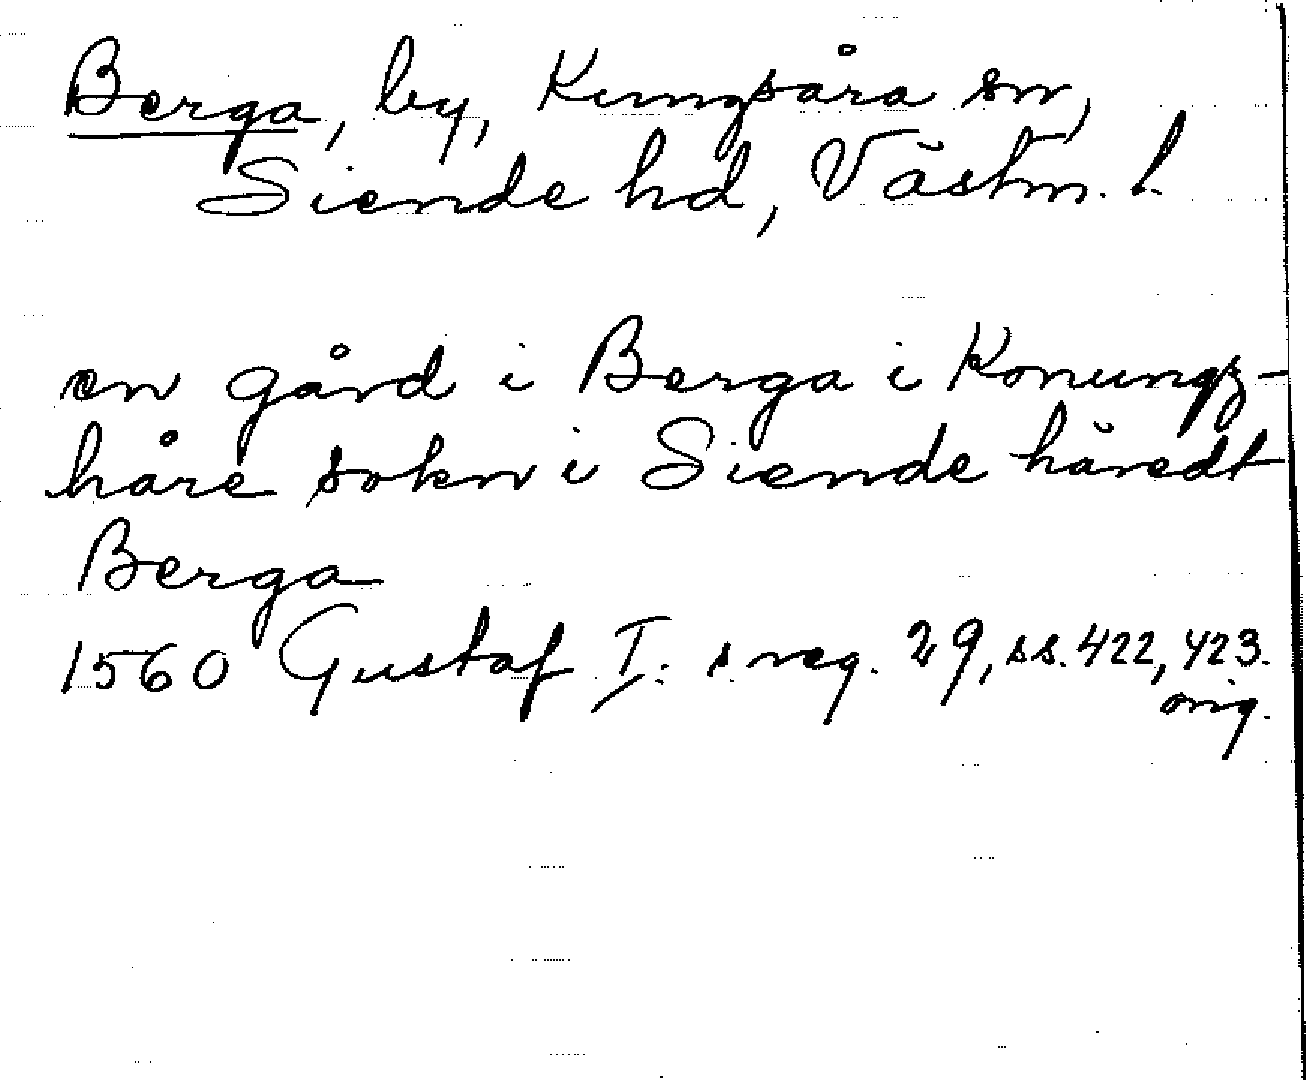 Berga, by, Kungsåra sn,
Siende hd, Västm. l.
en gård i Berga i Konungz-
håre sokn i Siende häredt
Berga
1560 Gustaf I: s reg. 29, ss. 422, 423.
orig.